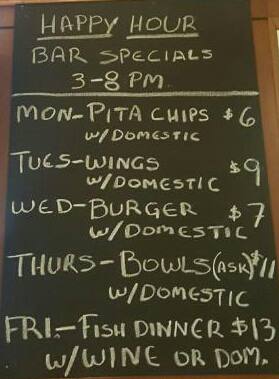 HAPPY HOUR
BAR SPECIALS
3-8 PM
MON-PITA CHIPS $6
W/DOMESTIC
TUES-WINGS $9
W/DOMESTIC
WED-BURGER $7
W/DOMESTIC
THURS-BOWLS(ASK)$11
W/DOMESTIC
FRI.-FISH DINNER $13
W/WINE OR DOM.